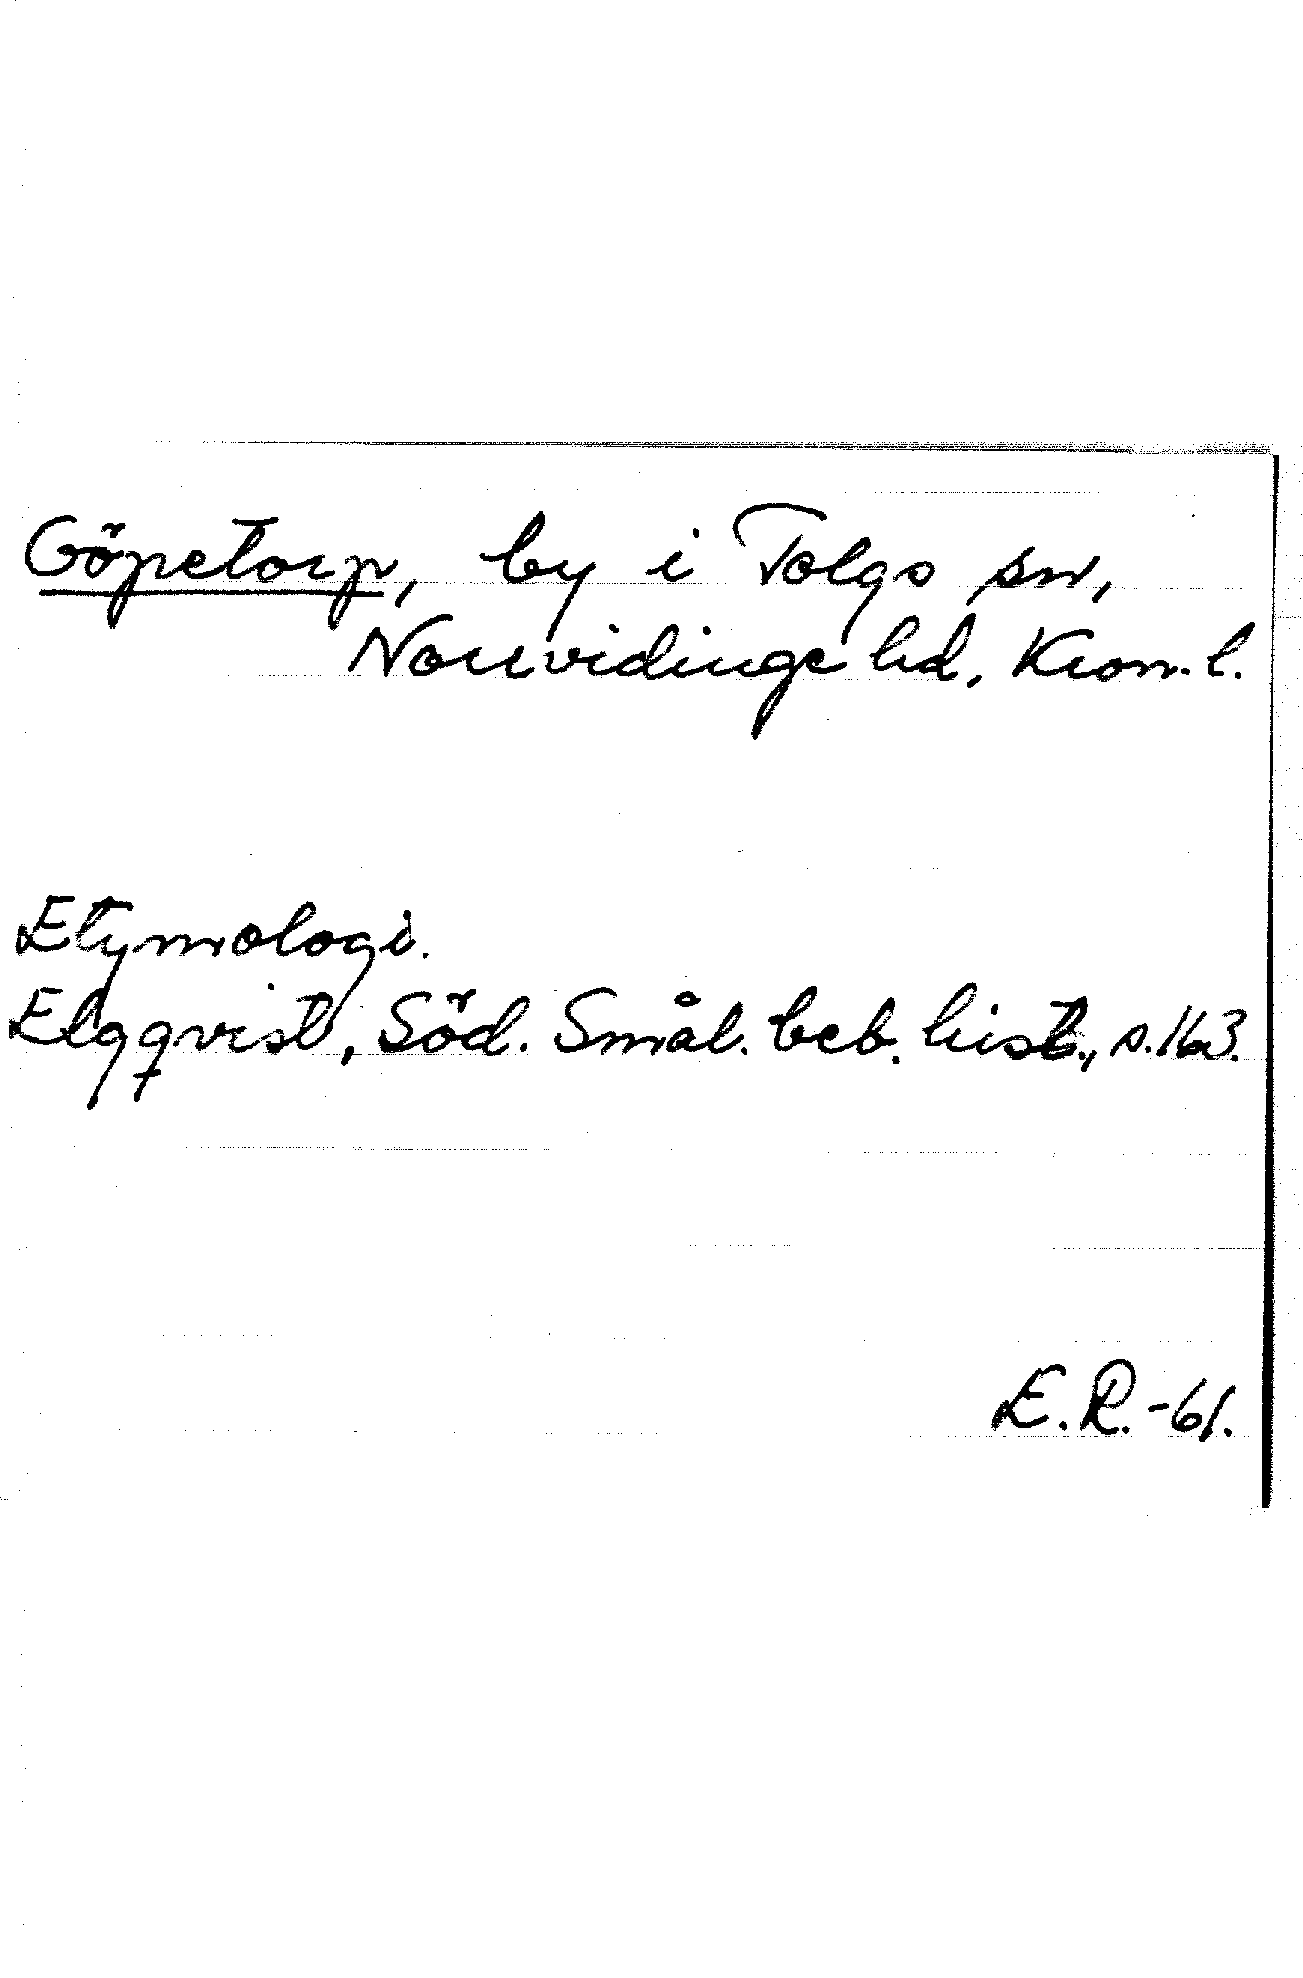 Göpetorp, by i Tolgs sn,
Norrvidinge hd, Kron. l.
Etymologi.
Elgqvist, Söd. Smål. beb. hist., s. 163.
E. R. -61.